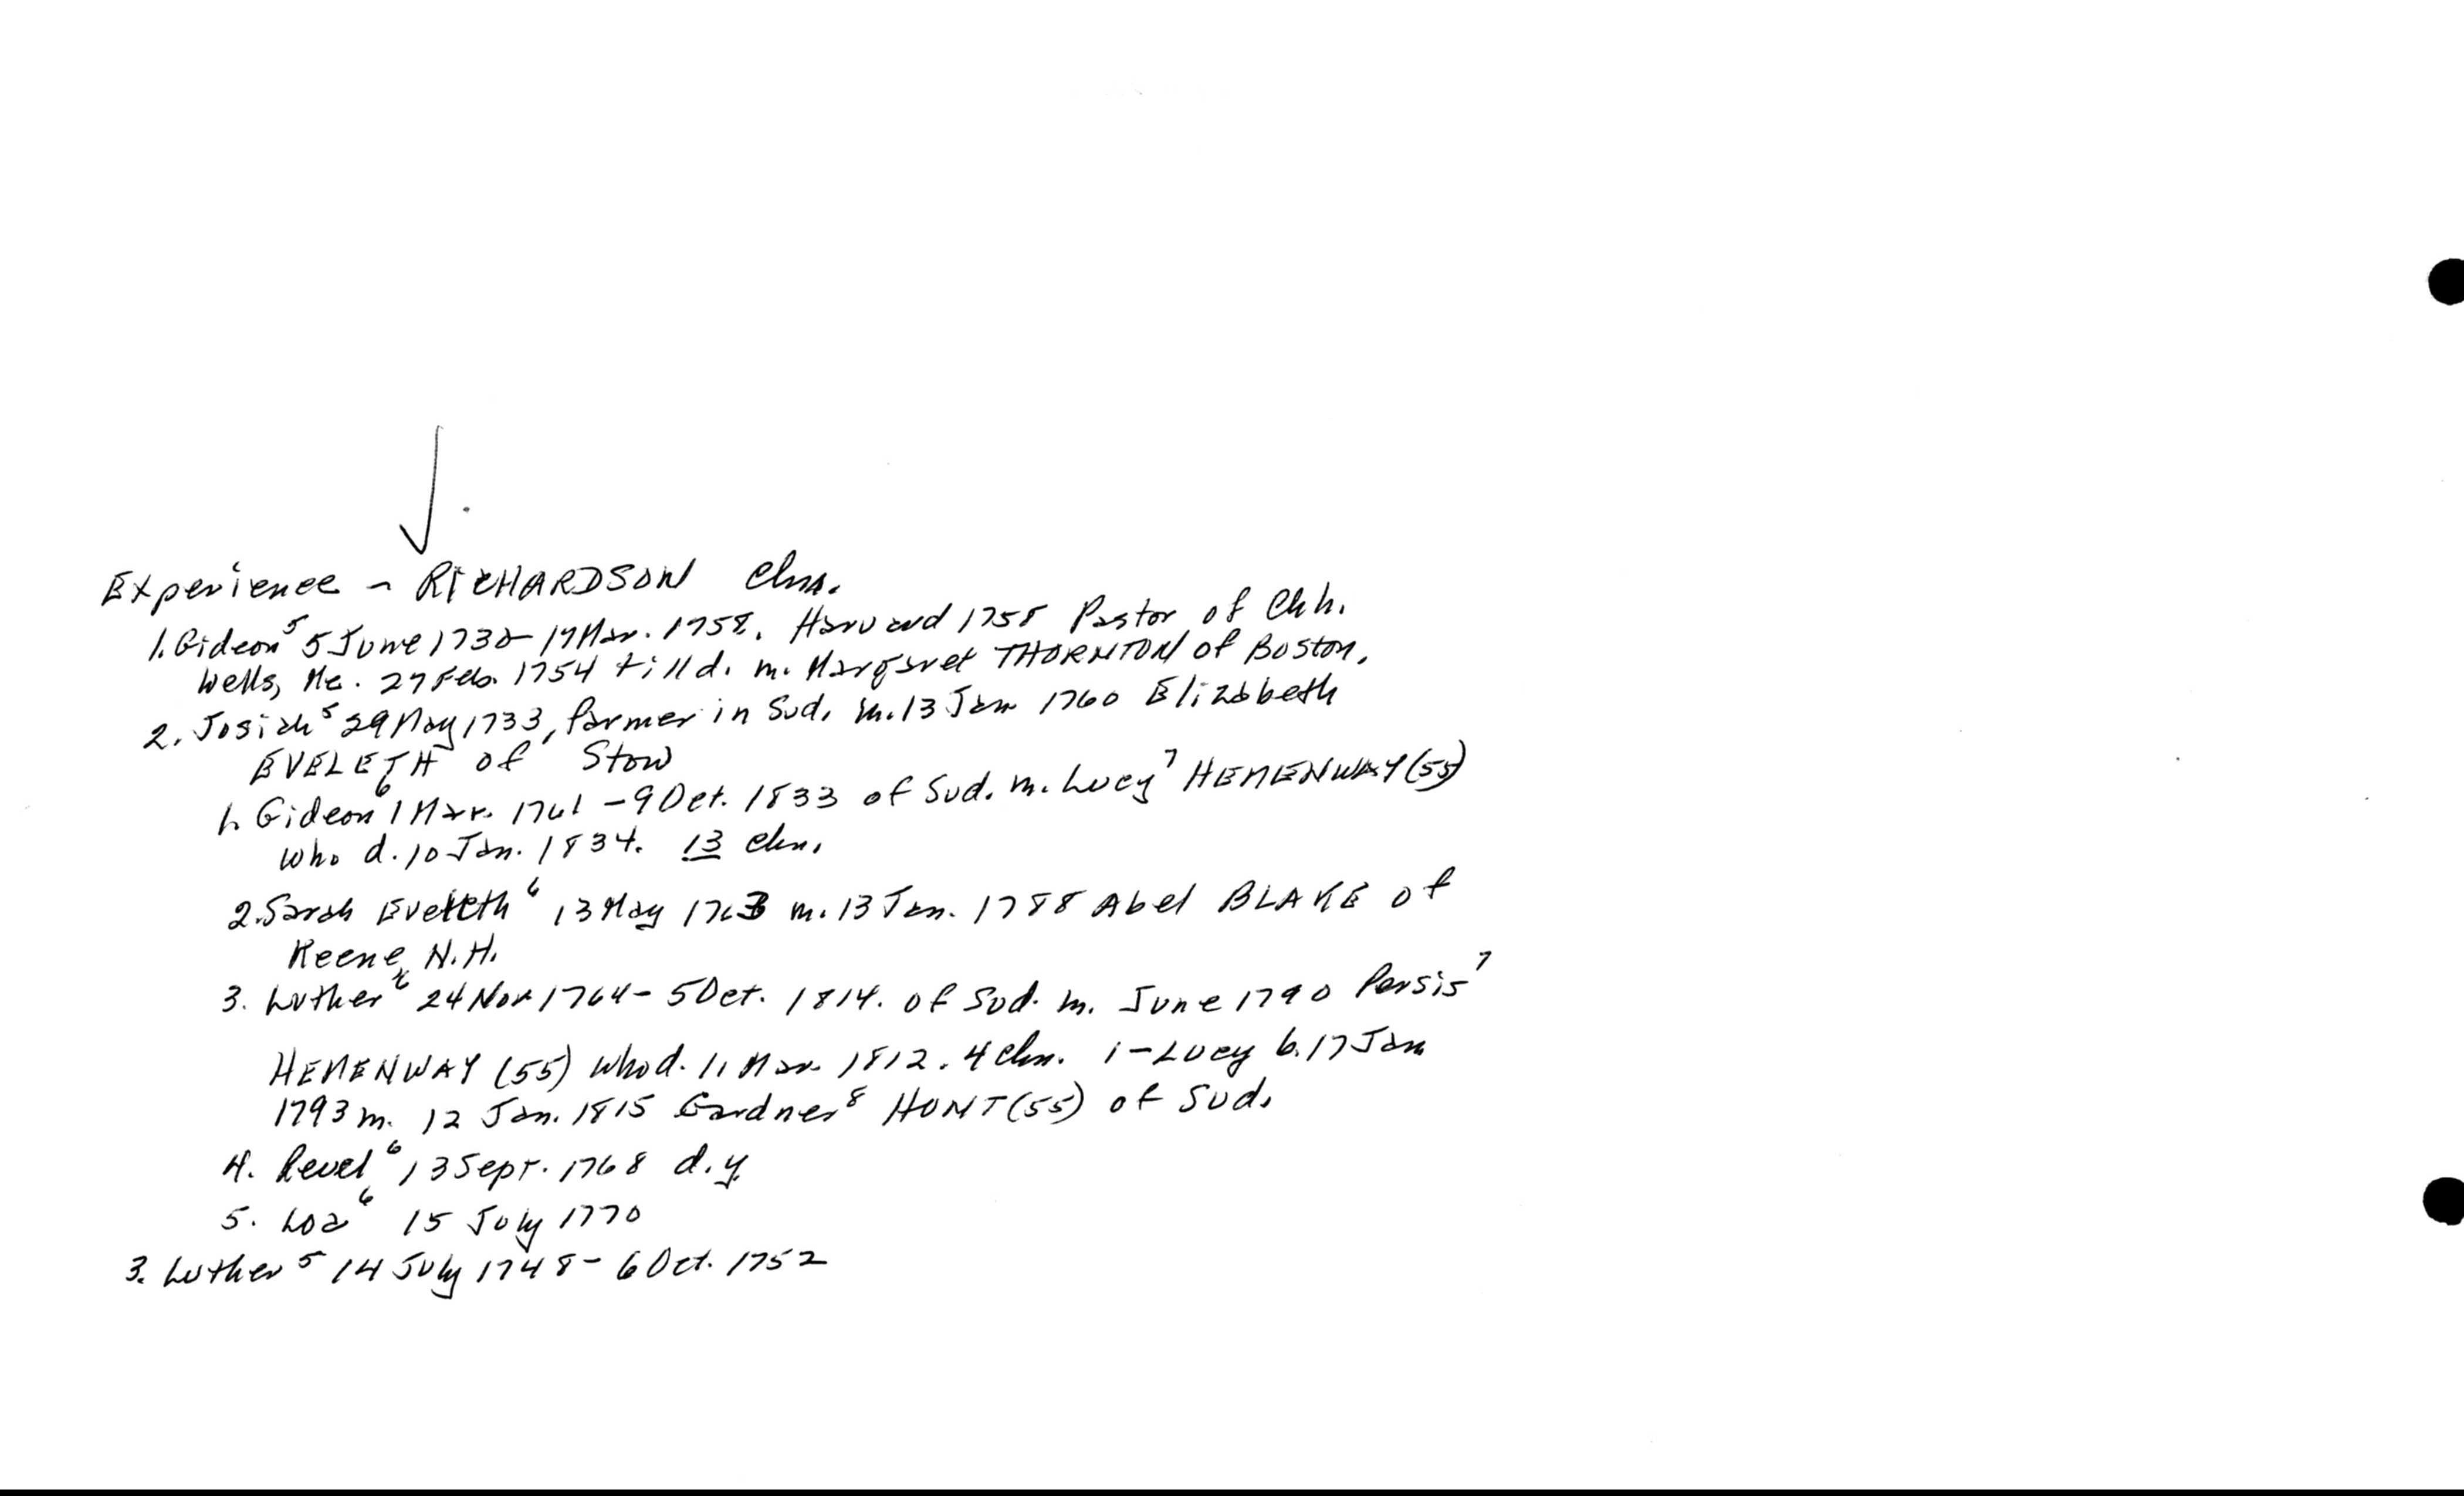 Experience - RICHARDSON Chn.
1. Gideon⁵ 5 June 1730-17 Mar. 1758. Harvard 1758 Pastor of Chh.
Wells, Me. 27 Feb. 1754 till d. m. Margaret THORNTON of Boston.
2. Josiah⁵ 29 May 1733, farmer in Sud. m. 13 Jan 1760 Elizabeth
EVELETH of Stow
1. Gideon⁶ 1 Mar. 1761 - 9 Oct. 1833 of Sud. m. Lucy⁷ HEMENWAY (55)
who d. 10 Jan. 1834. 13 chn.
2. Sarah Eveleth⁶ 13 May 1763 m. 13 Jan. 1788 Abel BLAKE of
Keene, N.H.
3. Luther⁶ 24 Nov 1764 - 5 Oct. 1814. of Sud. m. June 1790 Persis⁷
HEMENWAY (55) who d. 11 Mar. 1812. 4 chn. i - Lucy b. 17 Jan
1793 m. 12 Jan. 1815 Gardner⁸ HUNT (55) of Sud.
4. Revel⁶ 13 Sept. 1768 d.y.
5. Loa⁶ 15 July 1770
3. Luther⁵ 14 July 1748 - 6 Oct. 1752